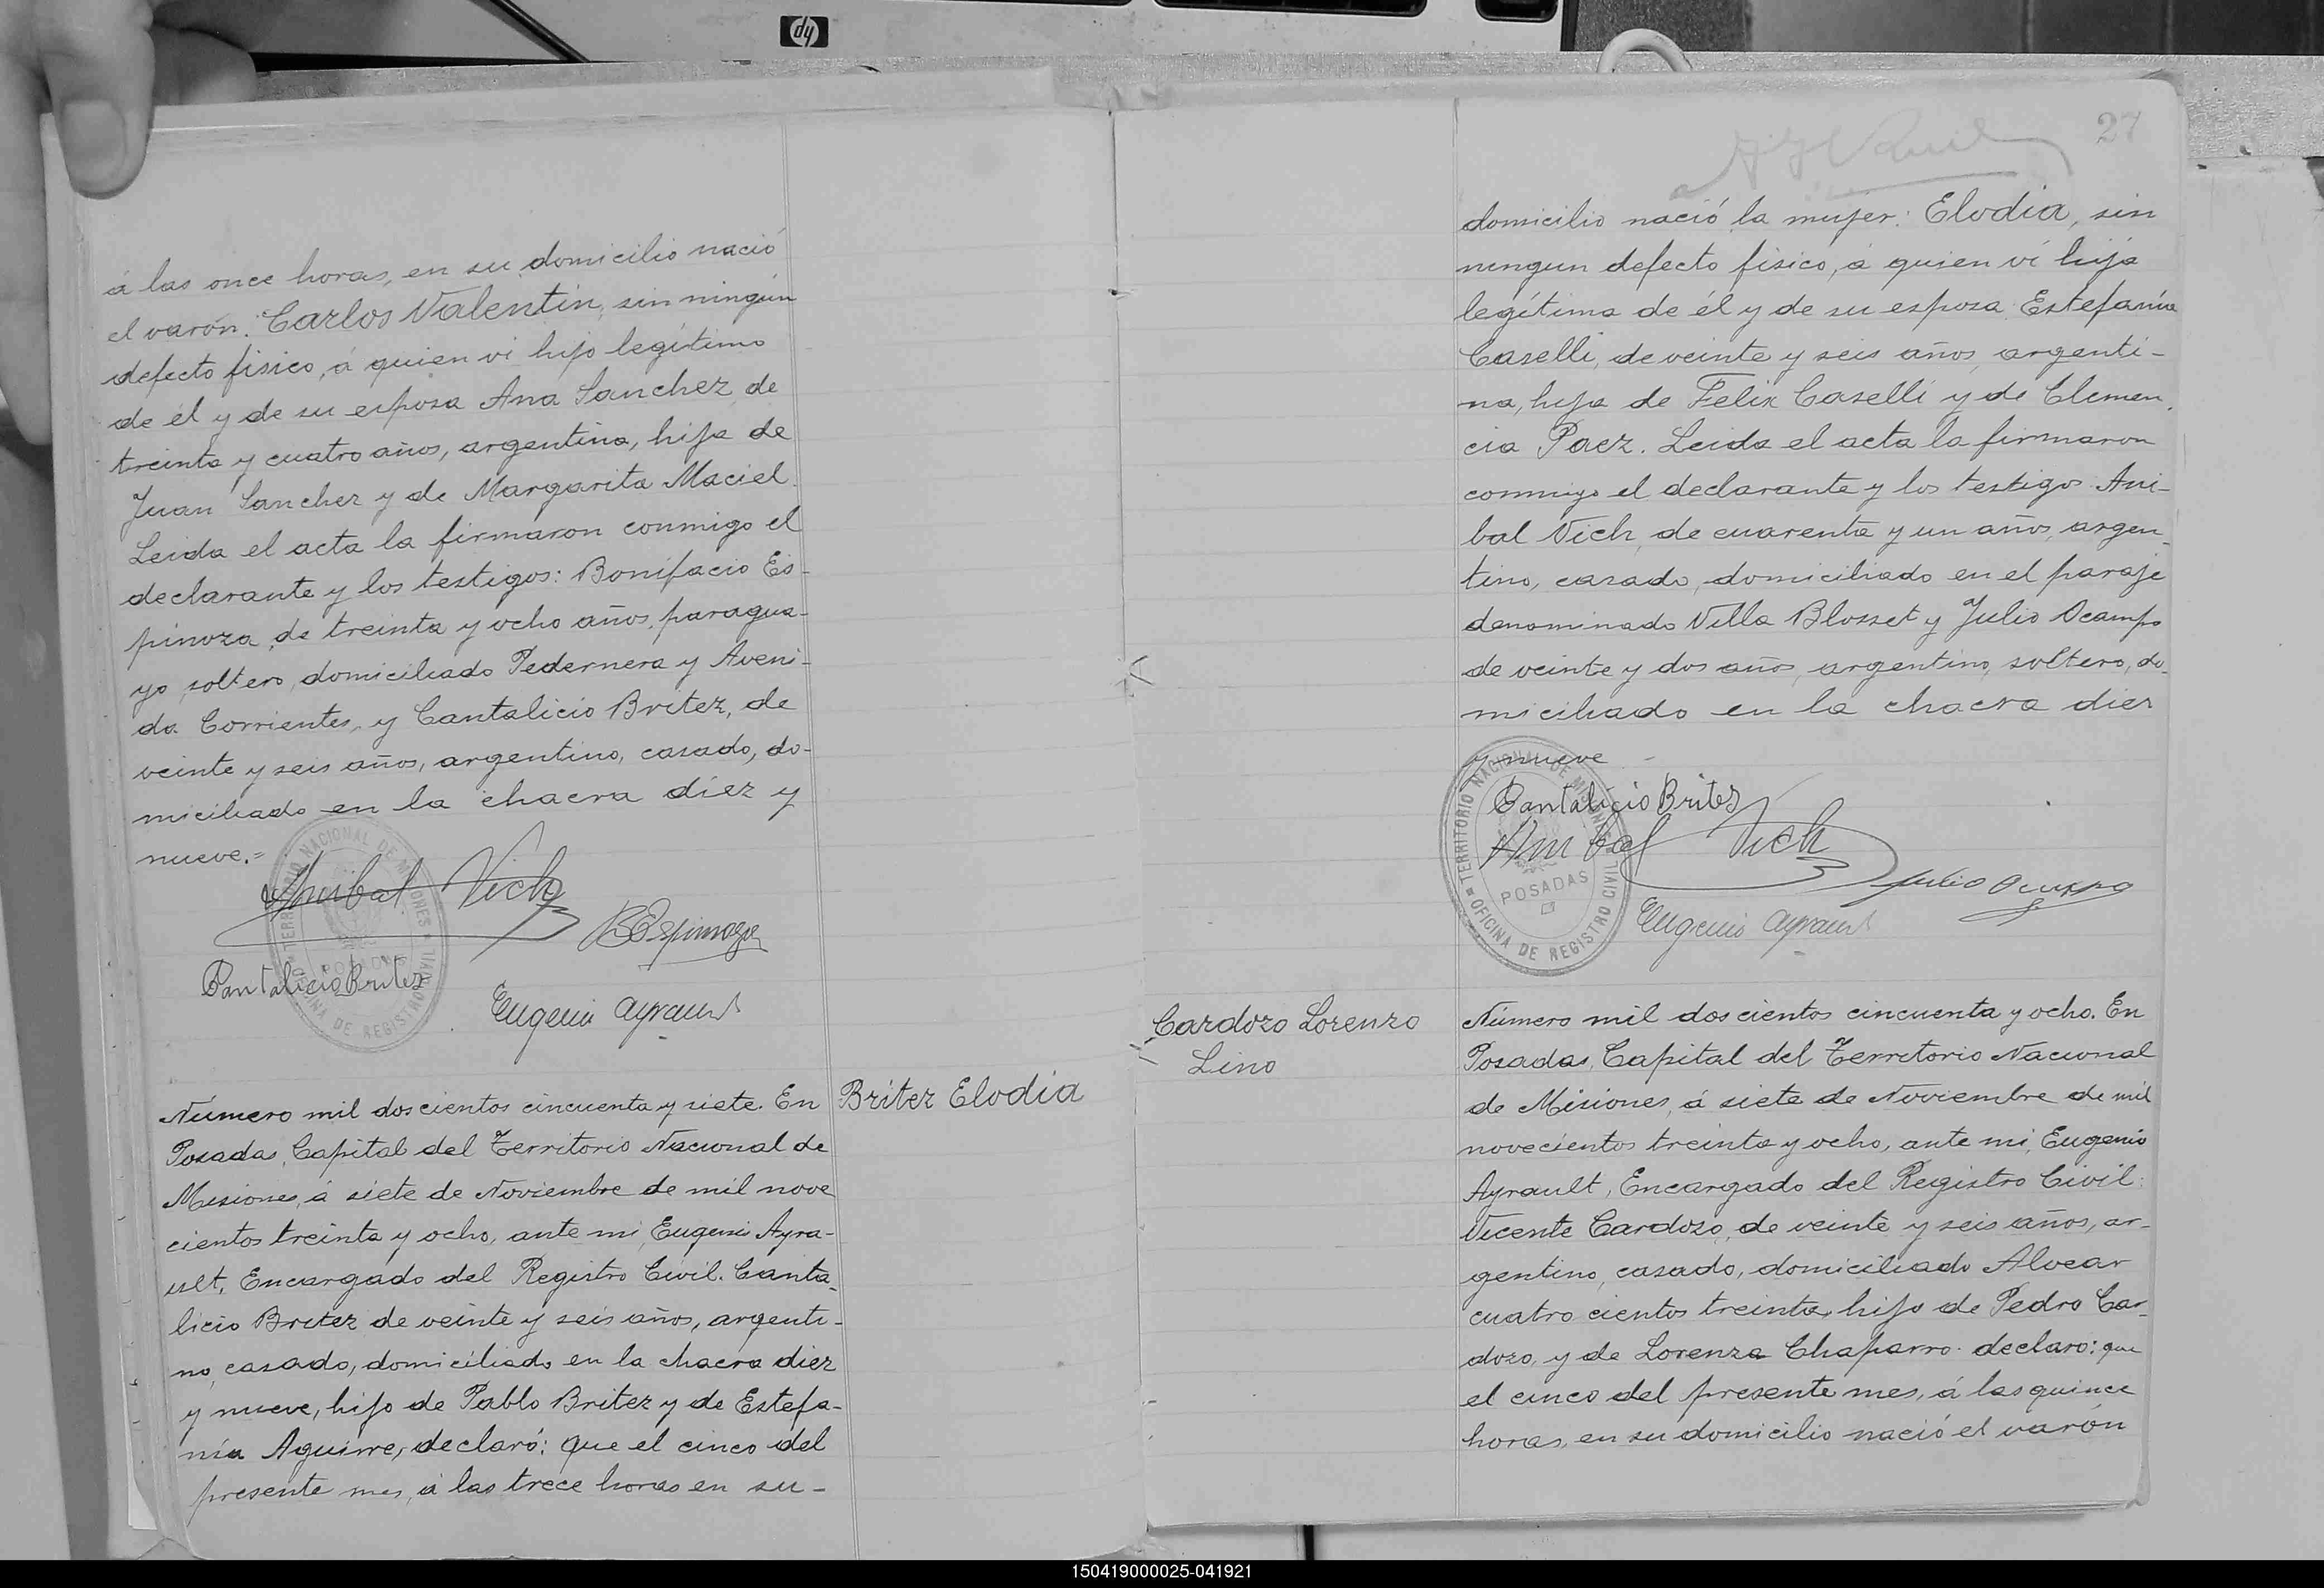 hp
á las once horas, en su domicilio nació
el varón: Carlos Valentin, sin ningún
defecto fisico, á quien vi hijo legitimo
de él y de su esposa Ana Sanchez, de
treinta y cuatro años, argentina, hija de
Juan Sanchez y de Margarita Maciel.
Leida el acta la firmaron conmigo el
declarante y los testigos: Bonifacio Es-
pinoza, de treinta y ocho años, paragua-
yo, soltero, domiciliado Pedernera y Aveni-
da Corrientes, y Cantalicio Britez, de
veinte y seis años, argentino, casado, do-
miciliado en la chacra diez y
nueve.=
TERRITORIO NACIONAL DE MISIONES
POSADAS
OFICINA DE REGISTRO CIVIL
Anibal Vich
B Espinoza
Cantalicio Britez
Eugenio Ayrault
Número mil doscientos cincuenta y siete. En
Posadas, Capital del Territorio Nacional de
Misiones, á siete de Noviembre de mil nove
cientos treinta y ocho, ante mi, Eugenio Ayra-
ult, Encargado del Registro Civil. Canta-
licio Britez de veinte y seis años, argenti-
no, casado, domiciliado en la chacra diez
y nueve, hijo de Pablo Britez y de Estefa-
nía Aguirre, declaró: que el cinco del
presente mes, á las trece horas en su-
Britez Elodia
27
domicilio nació la mujer: Elodia, sin
ningun defecto fisico, á quien vi hija
legítima de él y de su esposa Estefanía
Caselli, de veinte y seis años, argenti-
na, hija de Felix Caselli y de Clemen-
cia Paez. Leida el acta la firmaron
conmigo el declarante y los testigos Ani-
bal Vich, de cuarenta y un años, argen-
tino, casado, domiciliado en el paraje
denominado Villa Blosset y Julio Ocampo
de veinte y dos años, argentino, soltero, do-
miciliado en la chacra diez
y nueve
TERRITORIO NACIONAL DE MISIONES
POSADAS
OFICINA DE REGISTRO CIVIL
Cantalicio Britez
Anibal Vich
Julio Ocampo
Eugenio Ayrault
Cardozo Lorenzo
Lino
Número mil doscientos cincuenta y ocho. En
Posadas, Capital del Territorio Nacional
de Misiones, á siete de Noviembre de mil
novecientos treinta y ocho, ante mi, Eugenio
Ayrault, Encargado del Registro Civil:
Vicente Cardozo, de veinte y seis años, ar-
gentino, casado, domiciliado Alvear
cuatro cientos treinta, hijo de Pedro Car-
dozo, y de Lorenza Chaparro. declaro: que
el cinco del presente mes, á las quince
horas, en su domicilio nació el varón
150419000025-041921